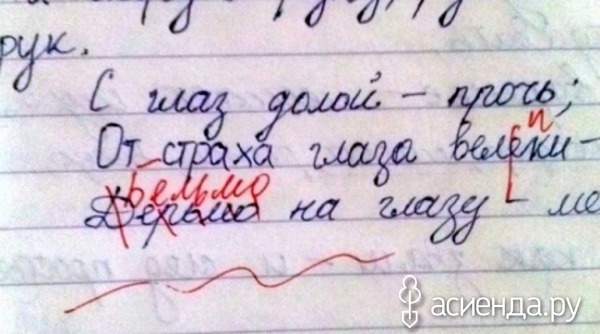 рук.
С глаз долой – прочь;
п
От страха глаза велеки –
Бельмо
Дерьмо на глазу – ме
асиенда.ру